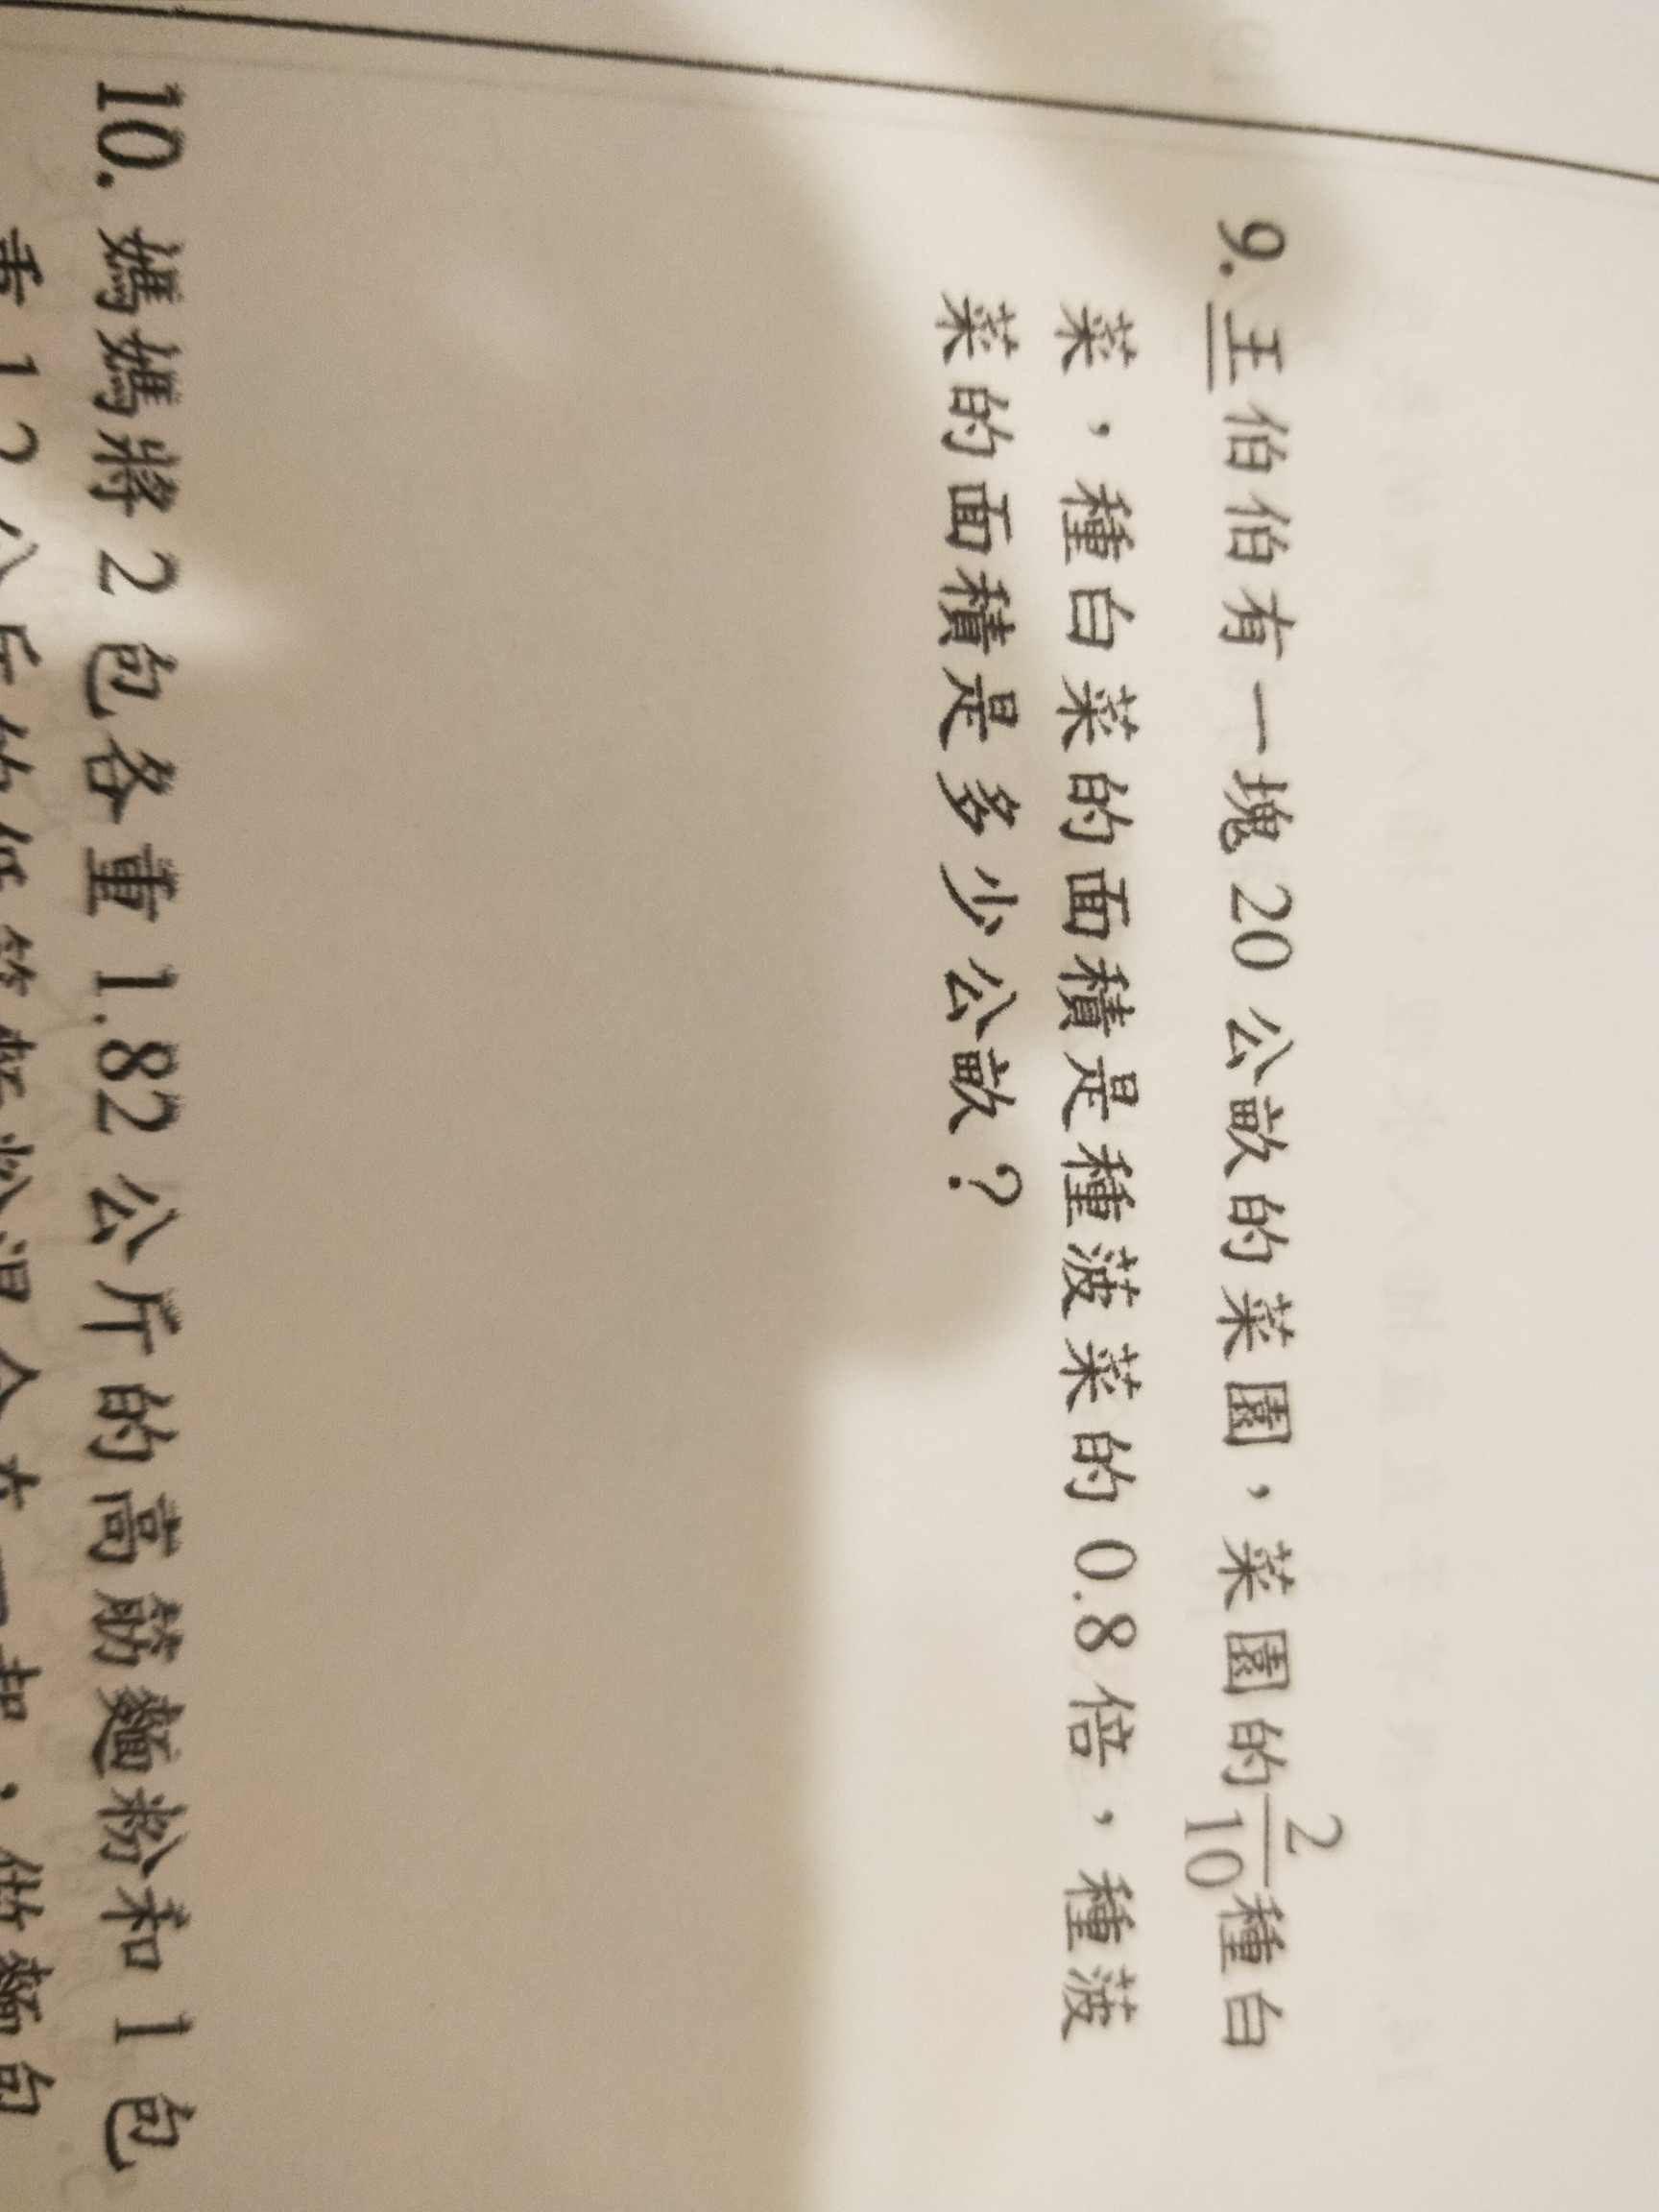 9. 王伯伯有一塊 20 公畝的菜園，菜園的 2/10 種白
菜，種白菜的面積是種菠菜的 0.8 倍，種菠
菜的面積是多少公畝？
10. 媽媽將 2 包各重 1.82 公斤的高筋麵粉和 1 包
重 1.2 公斤的低筋麵粉混合在一起，做麵包